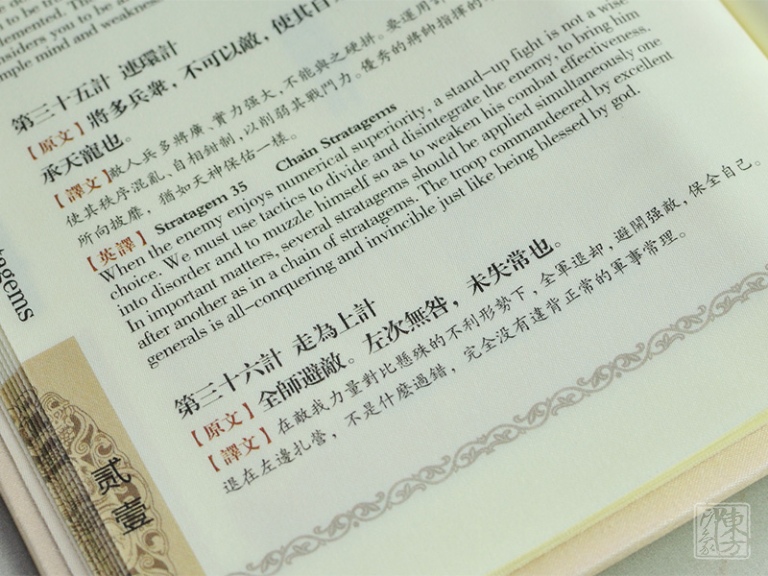 to be tr
mented. The
nsiders you to be a
mple mind and weakness
第三十五計 連環計
【原文】將多兵衆，不可以敵，使其自
承天寵也。
【譯文】敵人兵多將廣、實力强大，不能與之硬拼。要運用
使其秩序混亂、自相鉗制，以削弱其戰鬥力。優秀的將帥指揮的
所向披靡，猶如天神保佑一樣。
【英譯】Stratagem 35 Chain Stratagems
When the enemy enjoys numerical superiority, a stand-up fight is not a wise
choice. We must use tactics to divide and disintegrate the enemy, to bring him
into disorder and to muzzle himself so as to weaken his combat effectiveness.
In important matters, several stratagems should be applied simultaneously one
after another as in a chain of stratagems. The troop commandeered by excellent
generals is all-conquering and invincible just like being blessed by god.
第三十六計 走為上計
【原文】全師避敵。左次無咎，未失常也。
【譯文】在敵我力量對比懸殊的不利形勢下，全軍退却，避開强敵，保全自己。
退在左邊扎營，不是什麽過錯，完全没有違背正常的軍事常理。
tagems
贰壹
東方